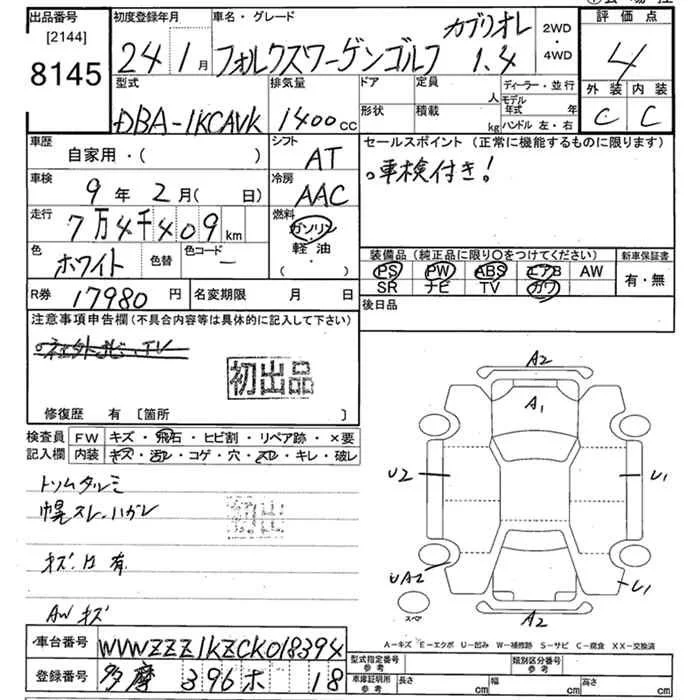 出品番号
[2144]
8145
初度登録年月
24 1月
車名・グレード
フォルクスワーゲンゴルフ カブリオレ 1.4
2WD
・
4WD
評価点
4
外装 内装
C C
型式
DBA-1KCAVK
排気量
1400cc
ドア
形状
定員
人
積載
kg
ディーラー・並行
モデル年式 年
ハンドル 左・右
車歴
自家用・( )
シフト
AT
セールスポイント(正常に機能するものに限ります)
○車検付き!
車検
9年2月( 日)
冷房
AAC
走行
7万4千409km
燃料
ガソリン
軽油
・( )
色
ホワイト
色替
色コード
ー
装備品(純正品に限り○をつけてください)
PS PW ABS エアB AW
SR ナビ TV カワ
新車保証書
有・無
R券 17980円
名変期限 月 日
後日品
注意事項申告欄(不具合内容等は具体的に記入して下さい)
初出品
修復歴 有 [箇所 ]
検査員記入欄
FW キズ・飛石・ヒビ割・リペア跡・×要
内装 キズ・汚レ・コゲ・穴・スレ・キレ・破レ
トリムタルミ
幌スレ・ハガレ
初出品
キズ.凹有
AWキズ
A2
A1
U2
U1
UA2
U1
A2
スペア
A-キズ E-エクボ U-凹み W-補修跡 S-サビ C-腐食 XX-交換済
車台番号 WVWZZZ1KZCK018394
登録番号 多摩 396 ホ 18
型式指定番号
参考
類別区分番号
参考
車庫証明所
参考
長さ cm
幅 cm
高さ cm